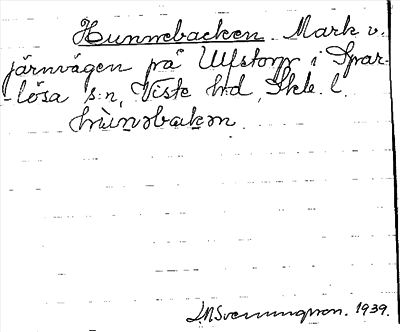 Hunnebacken. Mark v.
järnvägen på Ulfstorp i Spar-
-lösa s:n, Viste hd, Skb. l.
hùnəbakən
J.N.Svenningsson. 1939.